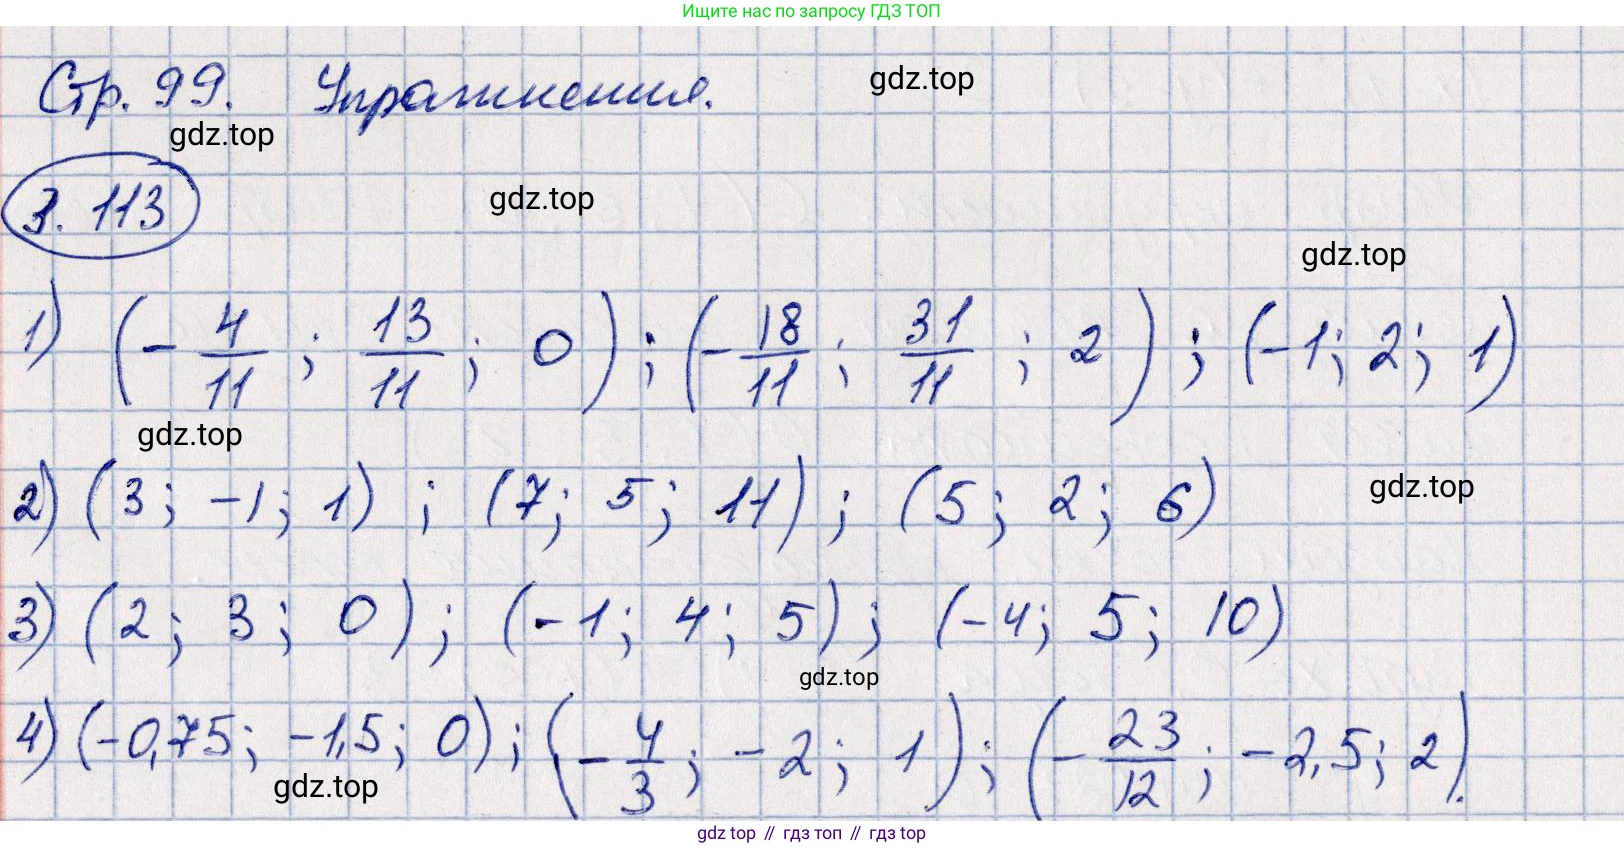 Ищите нас по запросу ГДЗ ТОП
Стр. 99. Упражнения.
gdz.top
gdz.top
3.113
gdz.top
gdz.top
1) (-4/11; 13/11; 0); (-18/11; 31/11; 2); (-1; 2; 1)
gdz.top
2) (3; -1; 1); (7; 5; 11); (5; 2; 6)
gdz.top
3) (2; 3; 0); (-1; 4; 5); (-4; 5; 10)
gdz.top
4) (-0,75; -1,5; 0); (-4/3; -2; 1); (-23/12; -2,5; 2).
gdz.top
gdz top // гдз топ // gdz top